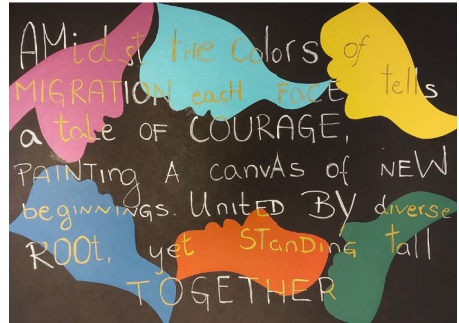 AMidst THE Colors of
MIGRATION eacH FACE tells
a tale OF COURAGE,
PAINTING A canvAs of NEW
beginnings. UniTED BY diverse
ROOt, yet STanDing tall
TOGETHER